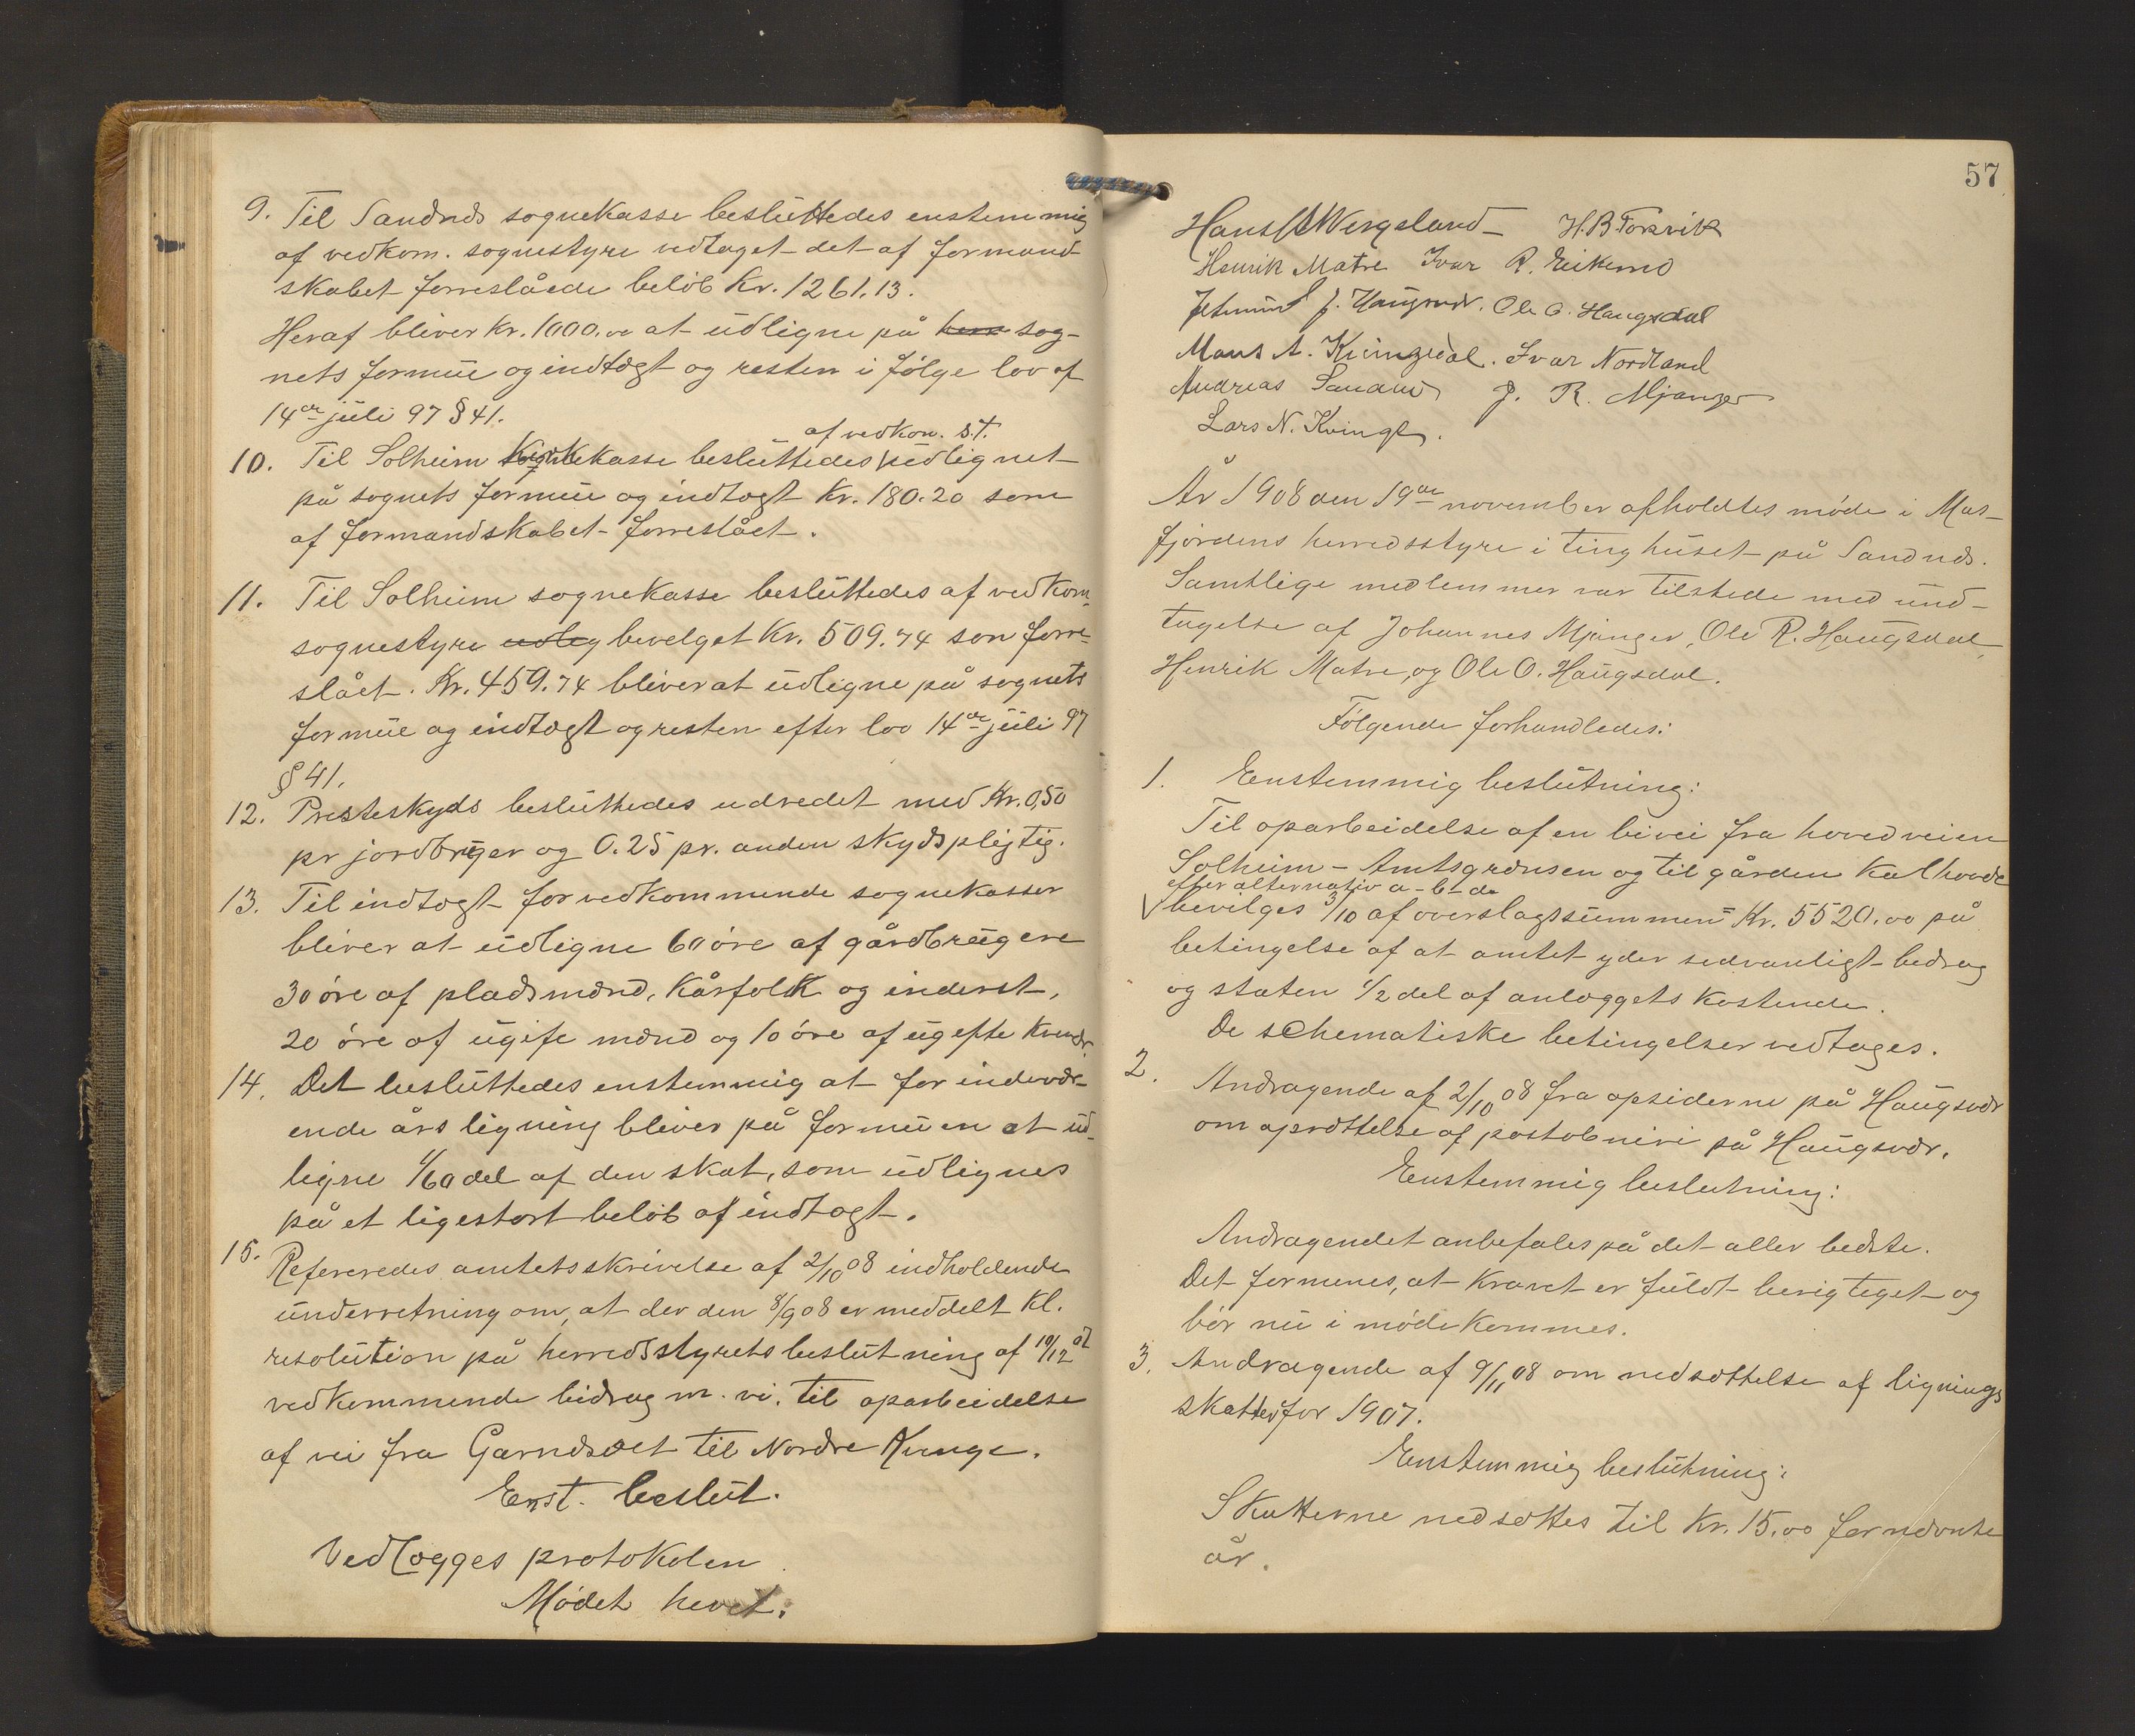 9. Til Sandnæs sognekasse besluttedes enstemmig
af vedkom. sognestyre vedtaget det af formand-
skabet forreslåede beløb Kr. 1261.13.
Heraf bliver Kr. 1000.00 at udligne på sog-
nets formue og indtægt og resten i følge lov af
14de juli 97 § 41.
af vedkom. s.t.
10. Til Solheim kirkekasse besluttedes udlignet
på sognets formue og indtægt Kr. 180.20 som
af formandskabet forreslået.
11. Til Solheim sognekasse besluttedes af vedkom.
sognestyre udlig bevelget Kr. 509.74 som forre-
slået. Kr. 459.74 bliver at udligne på sognets
formue og indtægt og resten efter lov 14de juli 97
§ 41.
12. Presteskyds besluttedes udredet med Kr. 0,50
pr jordbruger og 0.25 pr. anden skydspligtig.
13. Til indtægt for vedkommende sognekasser
bliver at udligne 60 øre af gårdbrugere
30 øre af pladsmænd, kårfolk og inderst,
20 øre af ugife mænd og 10 øre af ugifte kvindr.
14. Det besluttedes enstemmig at for indevær-
ende års ligning bliver på formuen at ud-
ligne 1/60 del af den skat, som udlignes
på et ligestort beløb af indtægt.
15. Refereredes amtets skrivelse af 2/10 08 indholdende
underretning om, at der den 8/9 08 er meddelt Kl.
resolution på herredsstyrets beslutning af 19/12 07
vedkommende bidrag m. vi. til oparbeidelse
af vei fra Garnæsæt til Nordre Kvinge.
Enst. beslut.
Vedlægges protokolen.
Mødet hevet.
57
Hans A Wergeland H. B. Torsvik
Henrik Matre Ivar R. Eikemo
J. Haugsvær. Ole O. Haugsdal
Mons A. Kvingedal. Ivar Nordland
Andreas Sandnæs J. R. Mjanger
Lars N. Kvinge.
År 1908 den 19de november afholdtes møde i Mas-
fjordens herredsstyre i tinghuset på Sandnæs.
Samtlige medlemmer var tilstede med und-
tagelse af Johannes Mjanger, Ole R. Haugsdal,
Henrik Matre, og Ole O. Haugsdal.
Følgende forhandledes:
1. Enstemmig beslutning:
Til oparbeidelse af en bivei fra hovedveien
Solheim - Amtsgrænsen og til gården Kalhovde
efter alternativ a - b - d
bevilges 3/10 af overslagssummen = Kr. 5520.00 på
betingelse af at amtet yder sedvanligt bedrag
og staten 1/2 del af anlæggets kostende.
De schematiske betingelser vedtages.
2. Andragende af 2/10 08 fra opsiderne på Haugsvær
om oprættelse af postabneri på Haugsvær.
Enstemmig beslutning:
Andragendet anbefales på det aller bedste.
Det formenes, at kravet er fuldt berigteget og
bør nu i møde kommes.
3. Andragende af 9/11 08 om nedsættelse af lignings
skatter for 1907.
Enstemmig beslutning:
Skatterne nedsættes til Kr. 15.00 for nævnte
år.